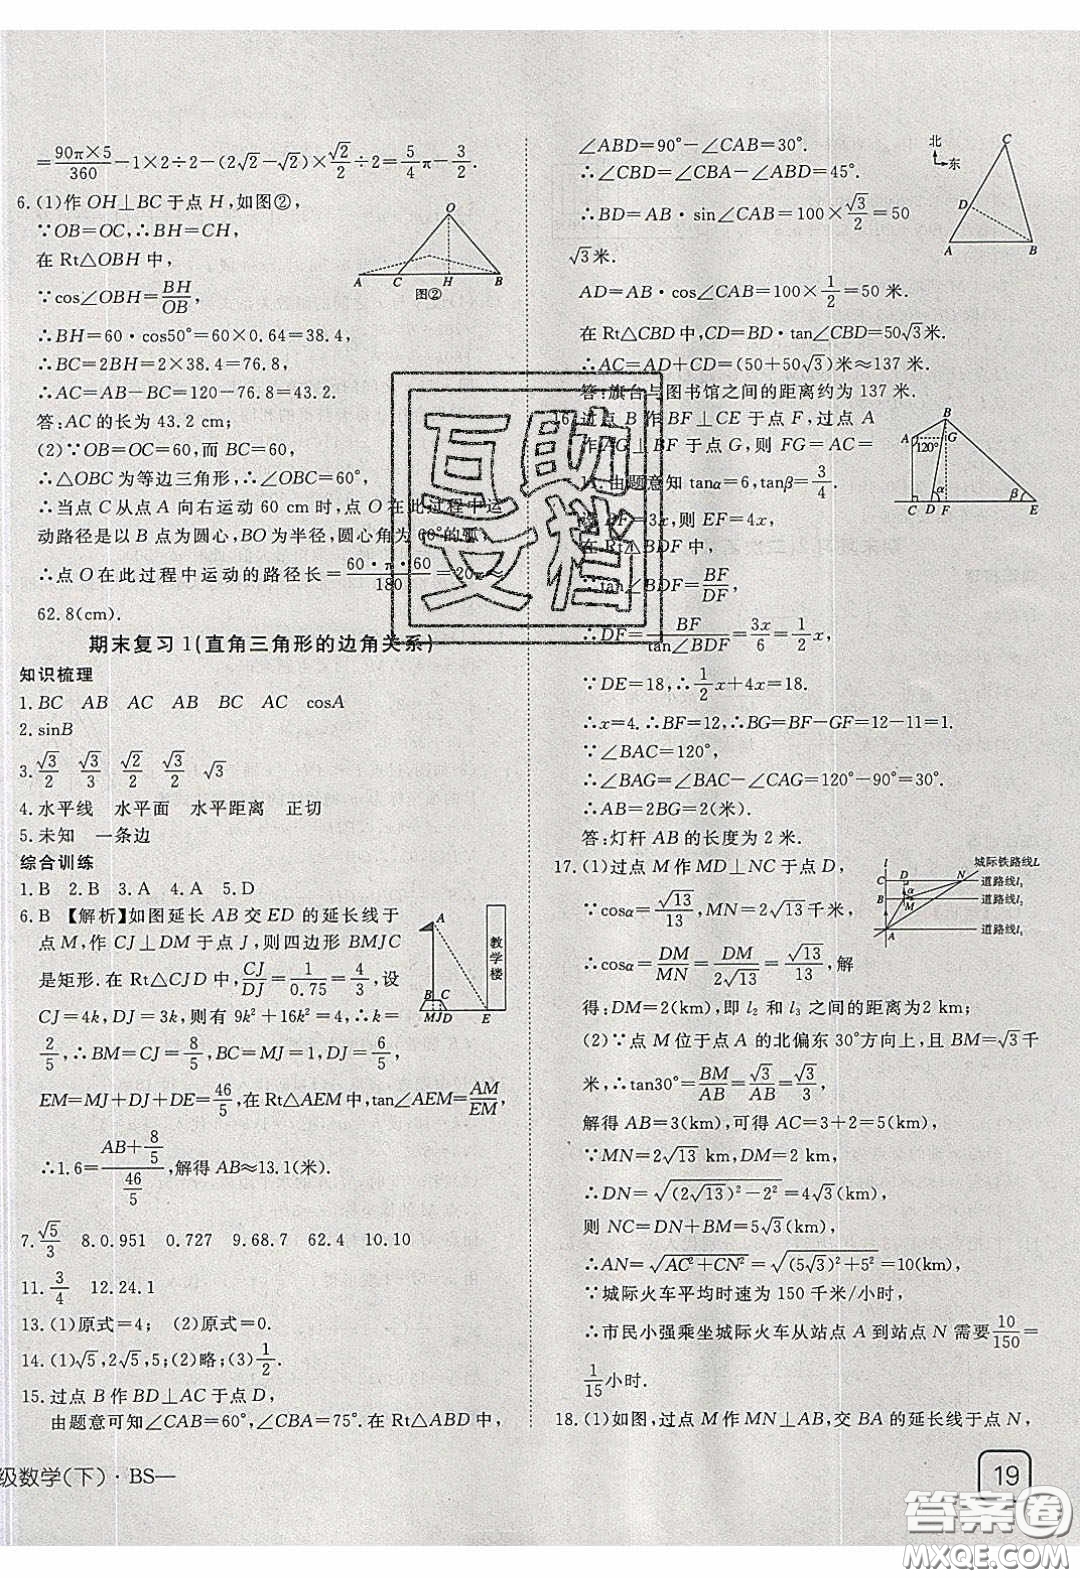 =\frac{90π×5}{360}-1×2÷2-(2√2-√2)×\frac{√2}{2}÷2=\frac{5}{4}π-\frac{3}{2}.
6.(1)作OH⊥BC于点H,如图②,
∵OB=OC,∴BH=CH,
在Rt△OBH中,
∵cos∠OBH=\frac{BH}{OB},
∴BH=60·cos50°=60×0.64=38.4,
∴BC=2BH=2×38.4=76.8,
∴AC=AB-BC=120-76.8=43.2.
答:AC的长为43.2 cm;
(2)∵OB=OC=60,而BC=60,
∴△OBC为等边三角形,∴∠OBC=60°,
∴当点C从点A向右运动60 cm时,点O在此过程中运
动路径是以B点为圆心,BO为半径,圆心角为60°的弧,
∴点O在此过程中运动的路径长=\frac{60·π·60}{180}=20π≈
62.8(cm).
O
A C H B
图②
期末复习1(直角三角形的边角关系)
知识梳理
1.BC AB AC BC cosA
2.sinB
3.\frac{√3}{2} \frac{√3}{3} \frac{√2}{2} \frac{√3}{2} √3
4.水平线 水平面 水平距离 正切
5.未知 一条边
综合训练
1.B 2.B 3.A 4.A 5.D
6.B 【解析】如图延长AB交ED的延长线于
点M,作CJ⊥DM于点J,则四边形BMJC
是矩形.在Rt△CJD中,\frac{CJ}{DJ}=\frac{1}{0.75}=\frac{4}{3},设
CJ=4k,DJ=3k,则有9k²+16k²=4,∴k=
\frac{2}{5},∴BM=CJ=\frac{8}{5},BC=MJ=1,DJ=\frac{6}{5},
EM=MJ+DJ+DE=\frac{46}{5},在Rt△AEM中,tan∠AEM=\frac{AM}{EM},
∴1.6=\frac{AB+\frac{8}{5}}{\frac{46}{5}},解得AB≈13.1(米).
A
教学楼
B C
MJD E
7.\frac{√5}{3} 8.0.951 0.727 9.68.7 62.4 10.10
11.\frac{3}{4} 12.24.1
13.(1)原式=4; (2)原式=0.
14.(1)√5,2√5,5;(2)略;(3)\frac{1}{2}.
15.过点B作BD⊥AC于点D,
由题意可知∠CAB=60°,∠CBA=75°.在Rt△ABD中,
∠ABD=90°-∠CAB=30°.
∴∠CBD=∠CBA-∠ABD=45°.
∴BD=AB·sin∠CAB=100×\frac{√3}{2}=50
√3米.
AD=AB·cos∠CAB=100×\frac{1}{2}=50米.
在Rt△CBD中,CD=BD·tan∠CBD=50√3米.
∴AC=AD+CD=(50+50√3)米≈137米.
答:旗台与图书馆之间的距离约为137米.
北
东
C
D
A B
16.过点B作BF⊥CE于点F,过点A
作AG⊥BF于点G,则FG=AC=
11.由题意知tanα=6,tanβ=\frac{3}{4}.
设BF=3x,则EF=4x,
在Rt△BDF中,
∵tan∠BDF=\frac{BF}{DF},
∴DF=\frac{BF}{tan∠BDF}=\frac{3x}{6}=\frac{1}{2}x,
∵DE=18,∴\frac{1}{2}x+4x=18.
∴x=4.∴BF=12,∴BG=BF-GF=12-11=1.
∵∠BAC=120°,
∴∠BAG=∠BAC-∠CAG=120°-90°=30°.
∴AB=2BG=2(米).
答:灯杆AB的长度为2米.
B
A 120° G
α β
C D F E
17.(1)过点M作MD⊥NC于点D,
∵cosα=\frac{√13}{13},MN=2√13千米,
∴cosα=\frac{DM}{MN}=\frac{DM}{2√13}=\frac{√13}{13},解
得:DM=2(km),即l₂和l₃之间的距离为2 km;
(2)∵点M位于点A的北偏东30°方向上,且BM=√3千
米,∴tan30°=\frac{BM}{AB}=\frac{√3}{AB}=\frac{√3}{3},
解得AB=3(km),可得AC=3+2=5(km),
∵MN=2√13 km,DM=2 km,
∴DN=√((2√13)²-2²)=4√3(km),
则NC=DN+BM=5√3(km),
∴AN=√(AC²+CN²)=√((5√3)²+5²)=10(km),
∵城际火车平均时速为150千米/小时,
∴市民小强乘坐城际火车从站点A到站点N需要\frac{10}{150}=
\frac{1}{15}小时.
l 城际铁路线L
C D N 道路线l₃
α
B M 道路线l₂
A 道路线l₁
18.(1)如图,过点M作MN⊥AB,交BA的延长线于点N,
级数学(下)·BS—
19
互助文档
答案圈
MXQE.COM